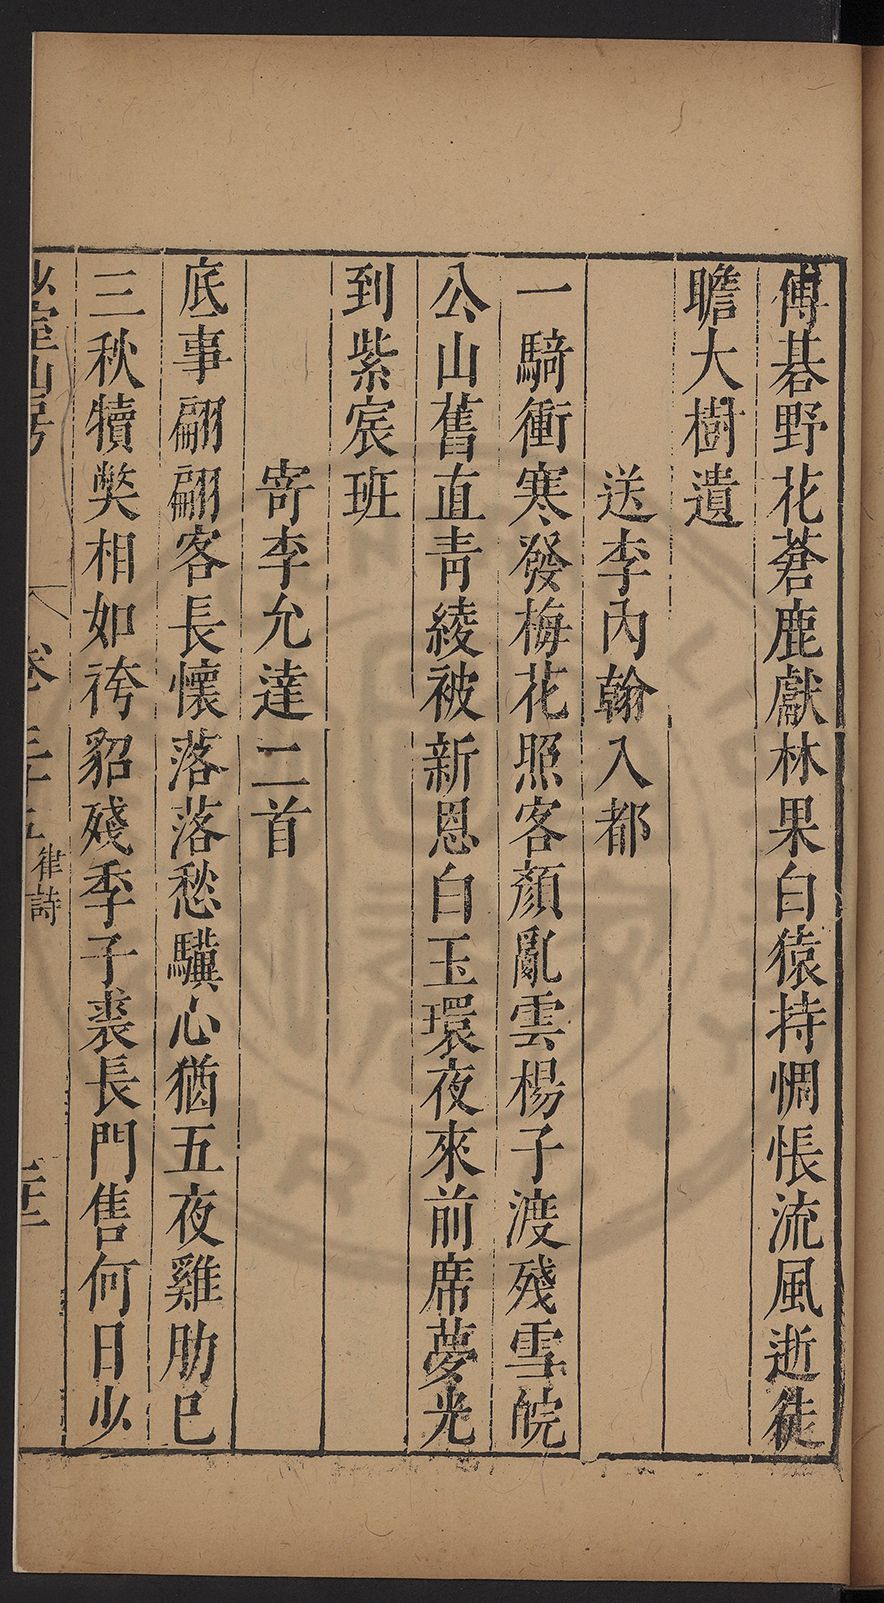 傅碁野花蒼鹿獻林果白猿持惆悵流風逝徒
瞻大樹遺
送李內翰入都
一騎衝寒發梅花照客顏亂雲楊子渡殘雪皖
公山舊直青綾被新恩白玉環夜來前席夢光
到紫宸班
寄李允達二首
底事翩翩客長懷落落愁驥心猶五夜雞肋已
三秋犢獘相如袴貂殘季子裘長門售何日少
少室山房
卷三十五
律詩